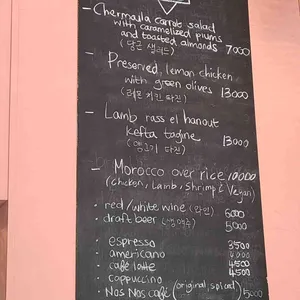 - Chermoula carrot salad
with caramelized plums
and toasted almonds
(당근 샐러드) 7000
- Preserved lemon chicken
with green olives
(레몬 치킨 타진) 13000
- Lamb rass el hanout
kefta tagine
(램고기 타진) 13000
- Morocco over rice 10000
(chicken, Lamb, shrimp & Vegan)
· red/white wine (와인) 6000
· draft beer (생맥주) 5000
· espresso 3500
· americano
· café latte 4500
· cappuccino 4500
· Nos Nos café (original, spiced) 5000